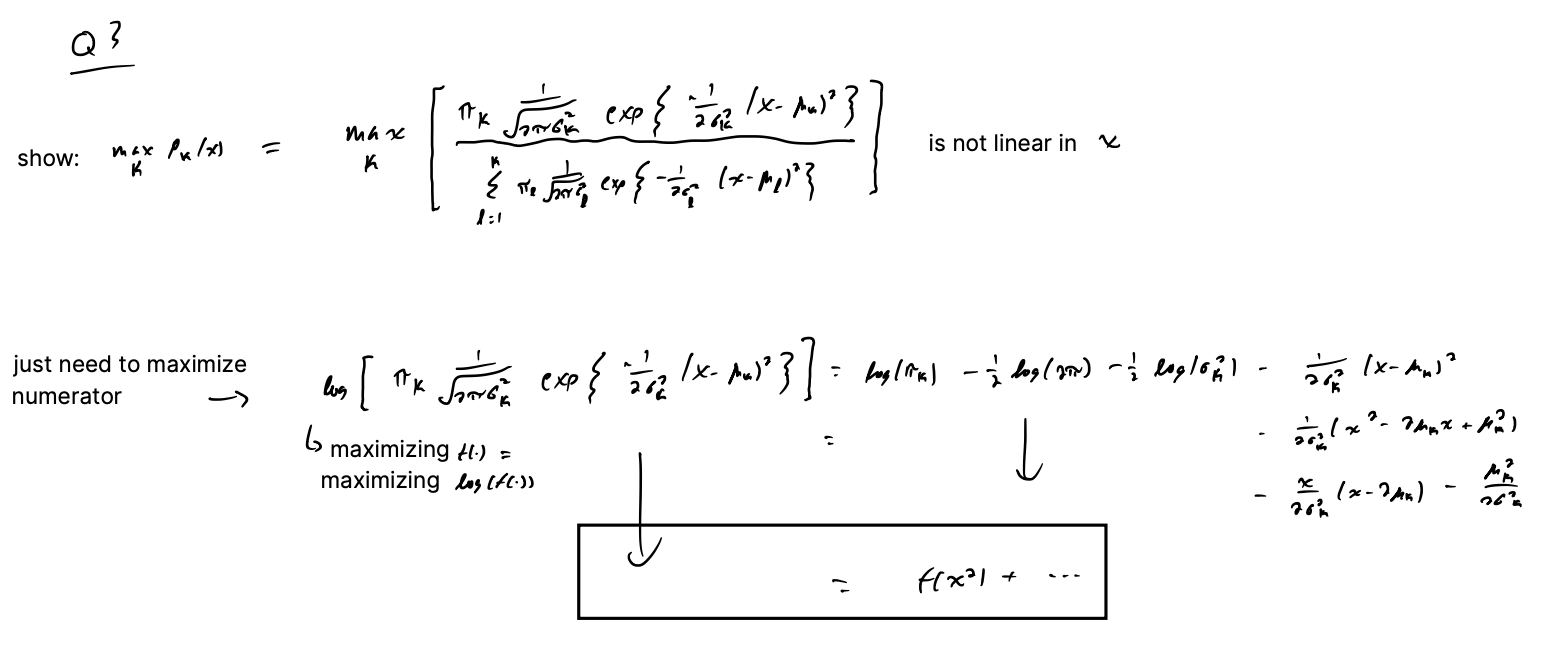 Q3
show: max_K p_K(x) = max_K [ π_K 1/√(2πσ_K²) exp{ -1/(2σ_K²) (x-μ_K)² } / Σ_{l=1}^{K} π_l 1/√(2πσ_l²) exp{ -1/(2σ_l²) (x-μ_l)² } ] is not linear in x
just need to maximize numerator → log[ π_K 1/√(2πσ_K²) exp{ -1/(2σ_K²) (x-μ_K)² } ] = log(π_K) - 1/2 log(2π) - 1/2 log(σ_K²) - 1/(2σ_K²) (x-μ_K)²
↳ maximizing f(·) = = ↓ - 1/(2σ_K²) (x² - 2μ_K x + μ_K²)
maximizing log(f(·)) ↓ - x/(2σ_K²) (x-2μ_K) - μ_K²/(2σ_K²)
= f(x²) + ...